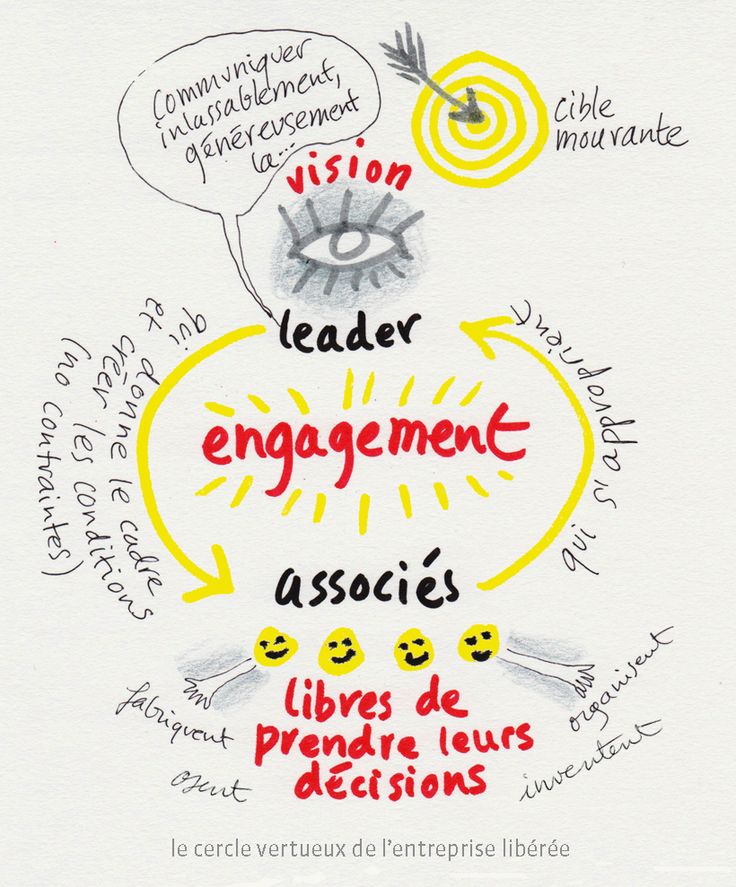 communiquer
inlassablement,
généreusement
la...
vision
cible
mourante
leader
qui donne le cadre
et créer les conditions
(no contraintes)
engagement
qui s'approprient
associés
libres de
prendre leurs
décisions
fabriquent
osent
organisent
inventent
le cercle vertueux de l'entreprise libérée